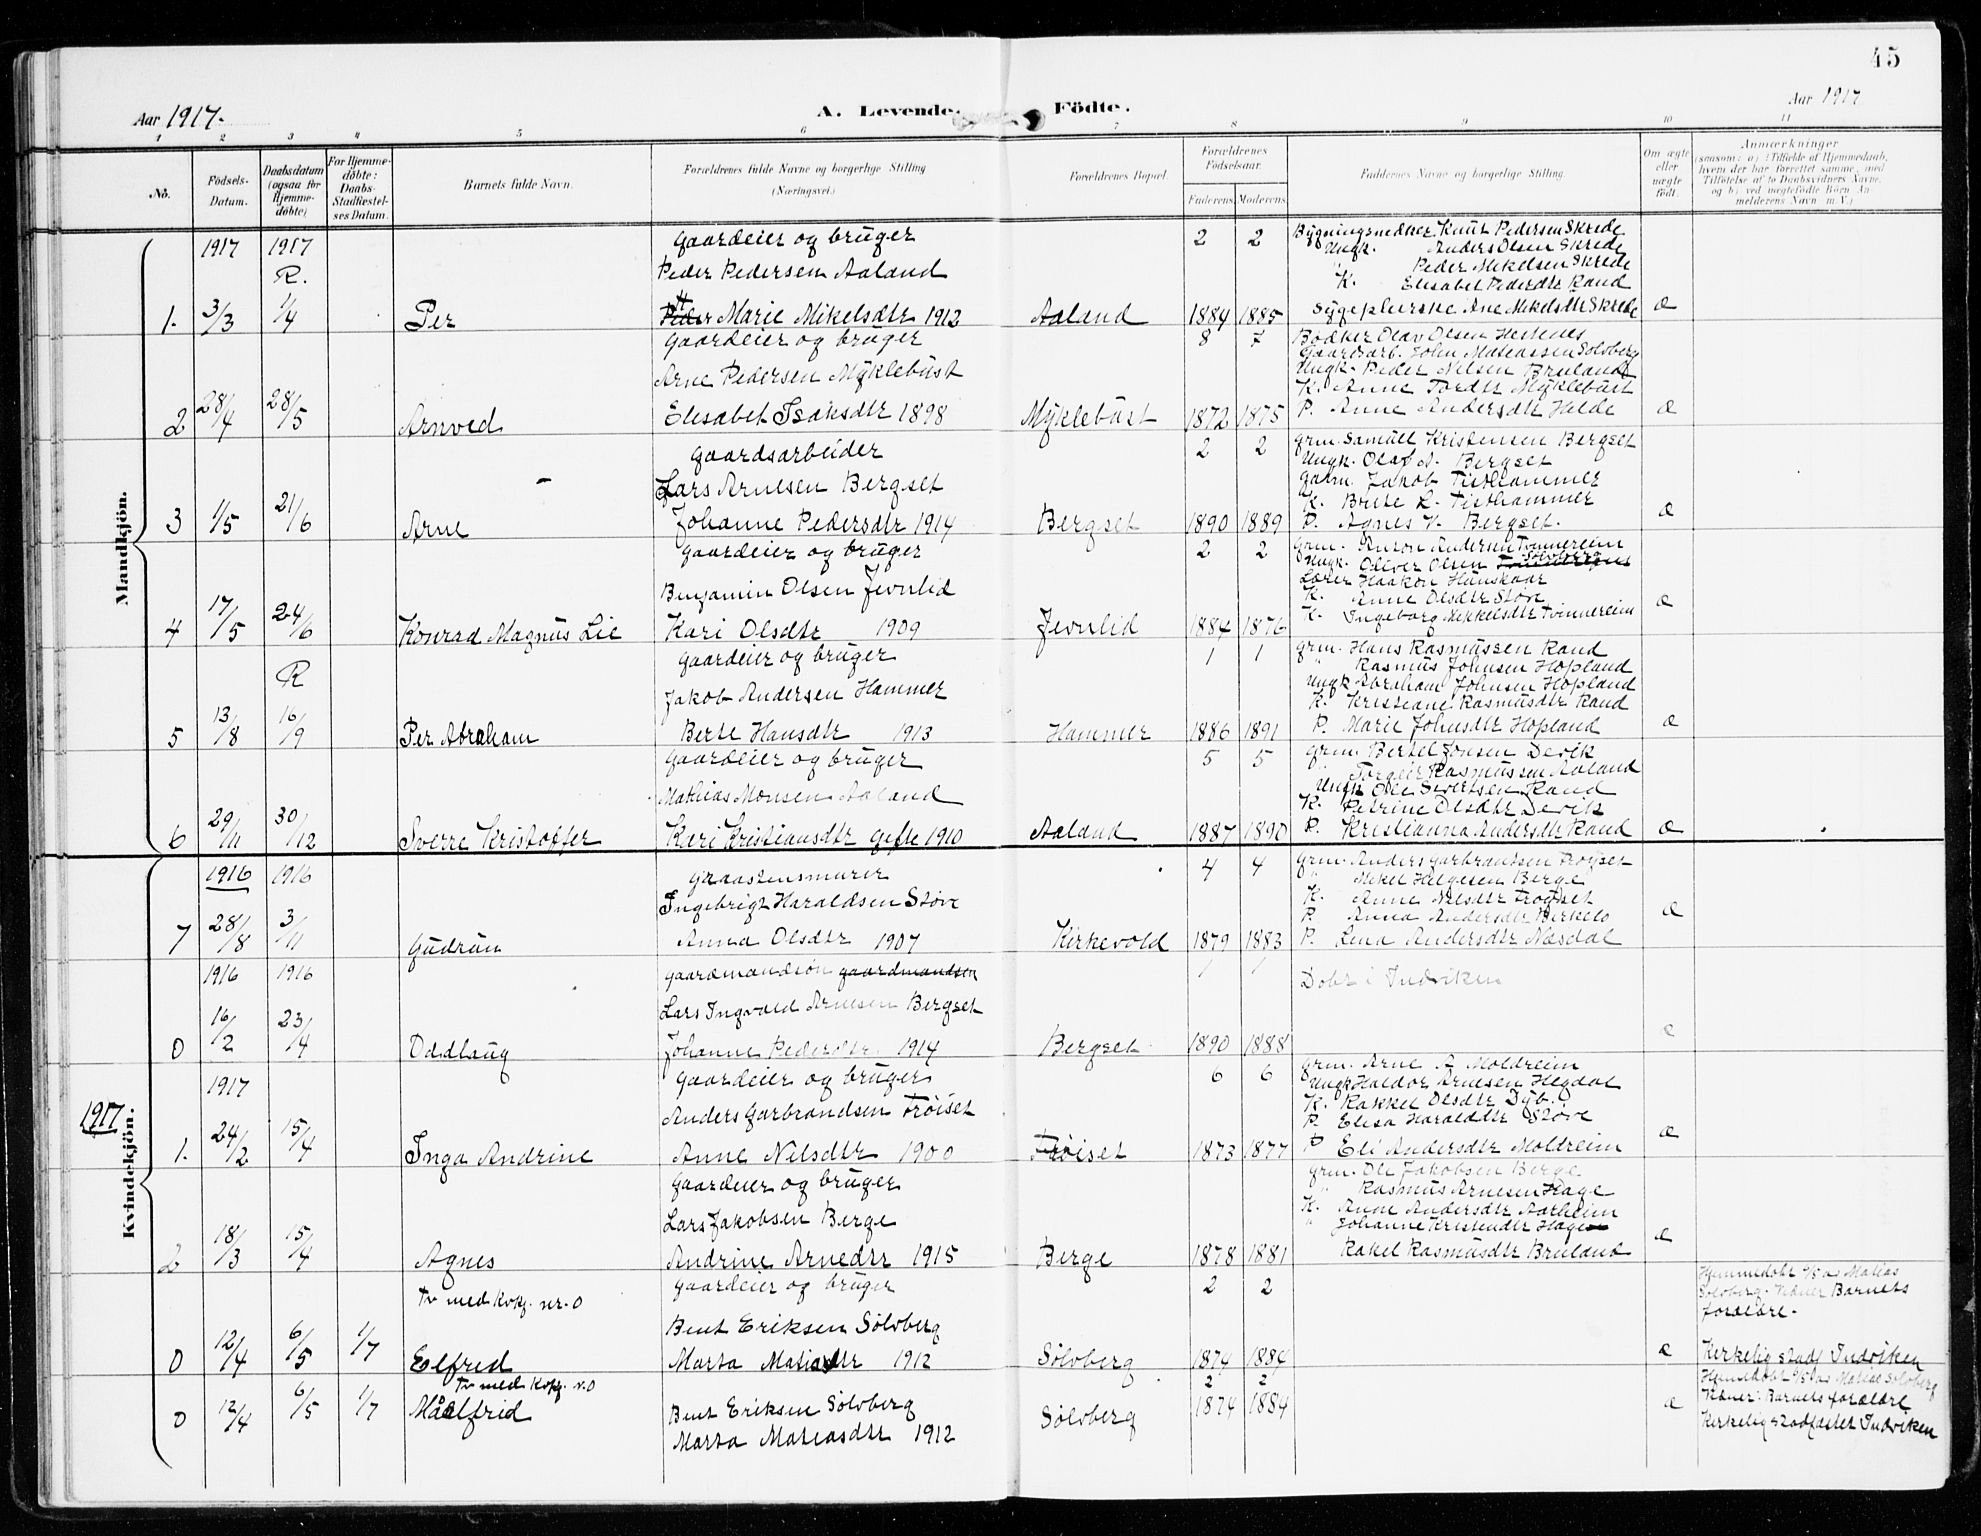 45
Aar 1917.
A. Levende Födte.
Aar 1917
1 2 3 4 5 6 7 8 9 10 11
No.
Födsels-Datum.
Daabsdatum (ogsaa for Hjemme-döbte)
For Hjemme-döbte: Daabs-Stadfæstel-ses Datum.
Barnets fulde Navn.
Forældrenes fulde Navne og borgerlige Stilling (Næringsvei.)
Forældrenes Bopæl.
Forældrenes Födselsaar.
Faderens. Moderens.
Faddernes Navne og borgerlige Stilling.
Om ægte eller uægte födt.
Anmærkninger (saasom: a) i Tilfælde af Hjemmedaab, hvem der har forrettet samme, med Tilföielse af to Daabsvidners Navne, og b) ved uægtefödte Börn Anmelderens Navn m. V.)
Mandkjön.
1917 1917 Gaardeier og bruger 2 2 Bygningssnedker Knut Pedersen Skrede
R. Peder Pedersen Aaland Ungk. Anders Olsen Skrede
" Peder Mikelsen Skrede
K. Elisabet Pedersdtr Rand
1. 3/3 1/4 Per Marie Mikelsdtr 1912 Aaland 1884 1885 Sygepleierske Ane Mikelsdtr Skrede æ
Gaardeier og bruger 8 7 Bødker Olav Olsen Hestenes
Gaardsarb. John Mateassen Solvberg
Arne Pedersen Myklebust Ungk. Peder Nilsen Bruland
K. Anne Tordtr Myklebust
2 28/4 28/5 Arnved Elisabet Isaksdtr 1898 Myklebust 1872 1875 P. Anne Andersdtr Helde æ
Gaardsarbeider 2 2 Grm. Samuel Kristensen Bergset
Ungk. Olaf A. Bergset
Lars Arnesen Bergset Garm. Jakob Tisthammer
K. Brite L. Tisthammer
3 1/5 21/6 Arne Johanne Pedersdtr 1914 Bergset 1890 1889 P. Agnes V. Bergset. æ
Gaardeier og bruger 2 2 Grm. Anton Andersen Tonnereim
Ungk. Oliver Olsen Solvberg
Benjamin Olsen Jevnlid Lærer Haakon Hunskaar
K. Anne Olsdtr Støve
4 17/5 24/6 Konrad Magnus Lie Kari Olsdtr 1909 Jevnlid 1884 1876 K. Ingeborg Mikkelsdtr Tonnereim æ
Gaardeier og bruger 1 1 Grm. Hans Rasmussen Rand
R " Rasmus Johnsen Hopland
Jakob Andersen Hammer Ungk Abraham Johnsen Hopland
K. Kristiane Rasmusdtr Rand
5 13/8 16/9 Per Abraham Berte Hansdtr 1913 Hammer 1886 1891 P. Marie Johnsdtr Hopland æ
Gaardeier og bruger 5 5 Grm. Bertel Jonsen Devik
" Torgeir Rasmussen Aaland
Mathias Monsen Aaland Ungk Ole Sivertsen Rand
K. Petrine Olsdtr Devik
6 29/11 30/12 Sverre Kristoffer Kari Kristiansdtr gifte 1910 Aaland 1887 1890 P. Kristianna Andersdtr Rand æ
Kvindekjön.
1916 1916 Graastensmurer 4 4 Grm. Anders Garbrantsen Trøiset
" Mikel Helgesen Berge
Ingebrigt Haraldsen Støve K. Anne Nilsdtr Trøiset
P. Anna Andersdtr Birkelo
7 28/8 3/11 Gudrun Anna Olsdtr 1907 Kirkevold 1879 1883 P. Lena Andersdtr Næsdal æ
1916 1916 gaardmandsøn gaardmandsen 1 1 Døbt i Indviken
Lars Ingvald Arnesen Bergset
0 16/2 23/4 Oddlaug Johanne Pedersdtr 1914 Bergset 1890 1888 e
1917
1917 Gaardeier og bruger 6 6 Grm. Arne A Moldreim
Ungk Haldor Arnesen Hegdal
Anders Garbrandsen Trøiset K. Rakkel Olsdtr Dyb.
P. Elisa Haralddtr Støve
1. 24/2 15/4 Inga Andrine Anne Nilsdtr 1900 Trøiset 1873 1877 P Eli Andersdtr Moldreim æ
Gaardeier og bruger Grm. Ole Jakobsen Berge
" Rasmus Arnesen Hage
Lars Jakobsen Berge K. Anne Andersdtr Aarheim
" Johanne Kristendtr Hage
2 18/3 15/4 Agnes Andrine Arnedtr 1915 Berge 1878 1881 Rakel Rasmusdtr Bruland æ
Tv med Kvkj. nr. 0 Gaardeier og bruger 2 2 Hjemmedøbt 6/5 av Matias Solvberg. Vidner Barnets forældre.
Bent Eriksen Sølvberg
0 12/4 6/5 1/7 Eolfrid Marta Matiasdtr 1912 Sølvberg 1874 1884 e Kirkelig stadf Indviken
Tv med Kvkj. n.0 2 2 Hjemmedøbt 6/5 av Matias Solvberg
0 12/4 6/5 1/7 Målfrid Bent Eriksen Sølvberg Sølvberg 1874 1884 æ Vidner: Barnets forældre
Marta Matiasdtr 1912 Kirkelig stadfæstet Indviken